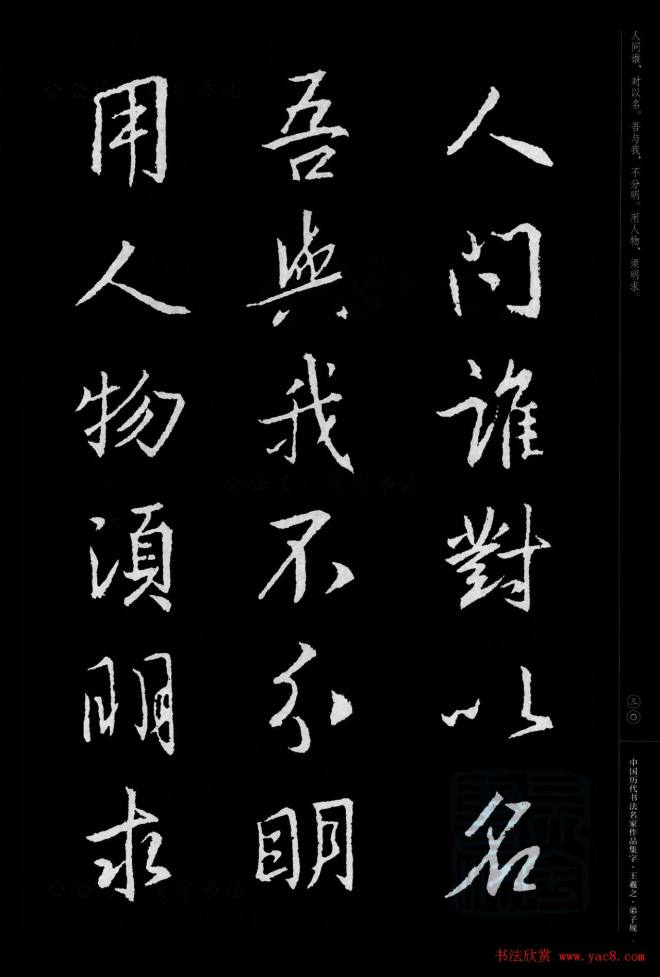 人問誰對以名
吾與我不分明
用人物須明求
人问谁，对以名。吾与我，不分明。用人物，须明求。
三〇
中国历代书法名家作品集字·王羲之·弟子规
书法欣赏 www.yac8.com